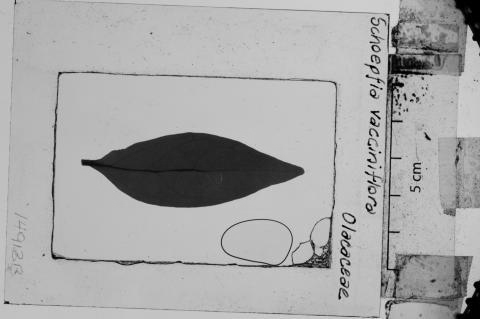 Schoepfia vacciniflora
Olacaceae
5 cm
1491BB